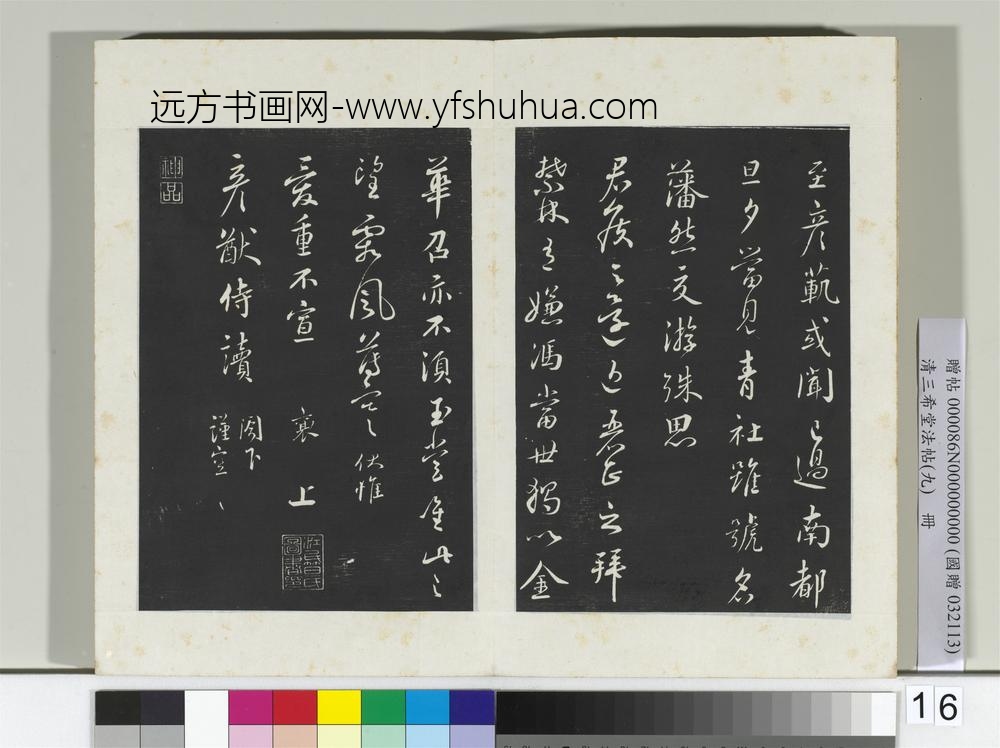 远方书画网-www.yfshuhua.com
至彦範或聞已過南都
旦夕當見青社雖號名
藩然交游殊思
君侯之還近麗正之拜
禁林有嫌馮當世獨以金
華召亦不須玉堂唯此之
望霜風薄寒伏惟
愛重不宣 襄上
彦猷侍讀 閤下
謹空
贈帖 000086N000000000 (國贈 032113)
清三希堂法帖(九) 冊
16